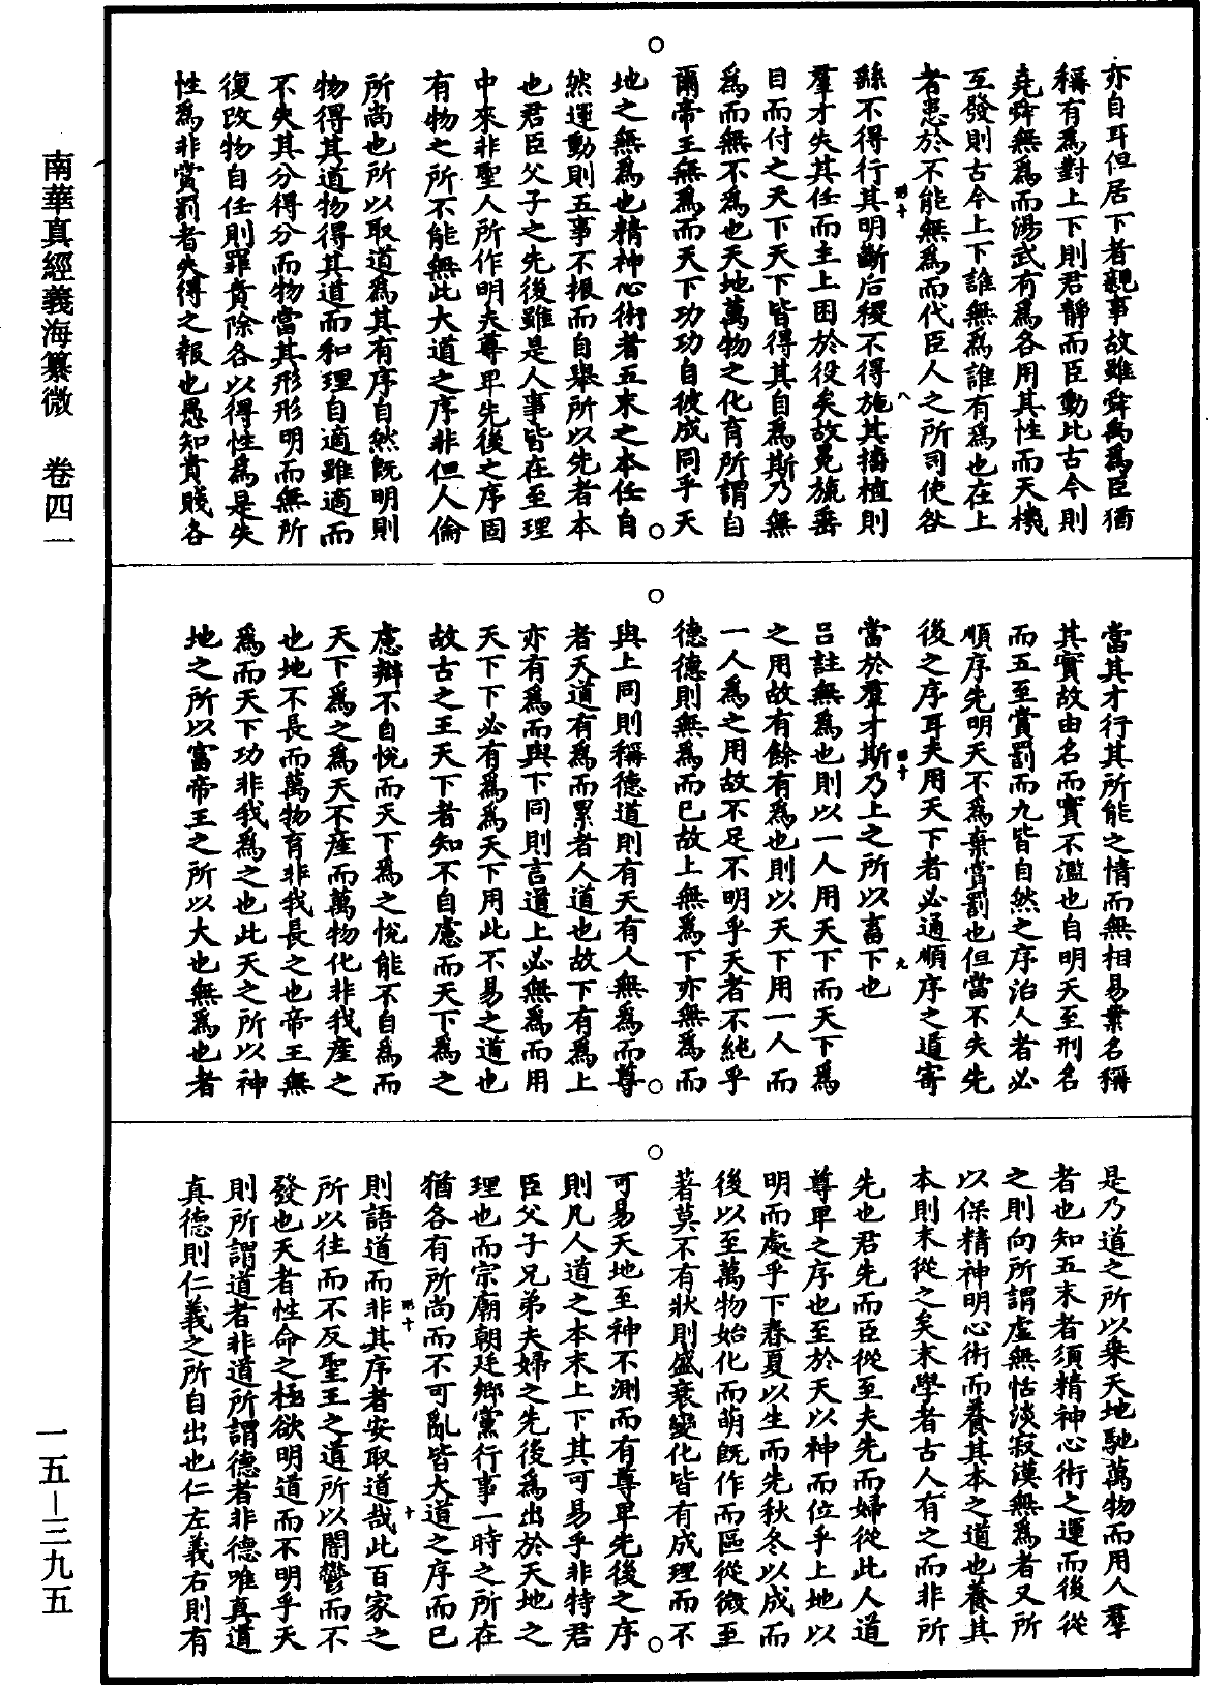 亦自耳但居下者親事故雖舜禹為臣猶
稱有為對上下則君靜而臣動比古今則
堯舜無為而湯武有為各用其性而天機
互發則古今上下誰無為誰有為也在上
者患於不能無為而代臣人之所司使咎
繇不得行其明斷后稷不得施其播植則
羣才失其任而主上困於役矣故冕旒垂
目而付之天下天下皆得其自為斯乃無
為而無不為也天地萬物之化育所謂自
爾帝王無為而天下功功自彼成同乎天
地之無為也精神心術者五末之本任自
然運動則五事不振而自舉所以先者本
也君臣父子之先後雖是人事皆在至理
中來非聖人所作明夫尊卑先後之序固
有物之所不能無此大道之序非但人倫
所尚也所以取道為其有序自然既明則
物得其道物得其道而和理自適雖適而
不失其分得分而物當其形形明而無所
復改物自任則罪責除各以得性為是失
性為非賞罰者失得之報也愚知貴賤各
當其才行其所能之情而無相易業名稱
其實故由名而實不濫也自明天至刑名
而五至賞罰而九皆自然之序治人者必
順序先明天不為棄賞罰也但當不失先
後之序耳夫用天下者必通順序之道寄
當於羣才斯乃上之所以畜下也
呂註無為也則以一人用天下而天下為
之用故有餘有為也則以天下用一人而
一人為之用故不足不明乎天者不純乎
德德則無為而已故上無為下亦無為而
與上同則稱德道則有天有人無為而尊
者天道有為而累者人道也故下有為上
亦有為而與下同則言道上必無為而用
天下下必有為為天下用此不易之道也
故古之王天下者知不自慮而天下為之
慮辯不自悅而天下為之悅能不自為而
天下為之為天不產而萬物化非我產之
也地不長而萬物育非我長之也帝王無
為而天下功非我為之也此天之所以神
地之所以富帝王之所以大也無為也者
是乃道之所以乘天地馳萬物而用人羣
者也知五末者須精神心術之運而後從
之則向所謂虛無恬淡寂漠無為者又所
以保精神明心術而養其本之道也養其
本則末從之矣末學者古人有之而非所
先也君先而臣從至夫先而婦從此人道
尊卑之序也至於天以神而位乎上地以
明而處乎下春夏以生而先秋冬以成而
後以至萬物始化而萌既作而區從微至
著莫不有狀則盛衰變化皆有成理而不
可易天地至神不測而有尊卑先後之序
則凡人道之本末上下其可易乎非特君
臣父子兄弟夫婦之先後為出於天地之
理也而宗廟朝廷鄉黨行事一時之所在
猶各有所尚而不可亂皆大道之序而已
則語道而非其序者安取道哉此百家之
所以往而不反聖王之道所以闇鬱而不
發也天者性命之極欲明道而不明乎天
則所謂道者非道所謂德者非德唯真道
真德則仁義之所自出也仁左義右則有
南華真經義海纂微　卷四一
一五—三九五